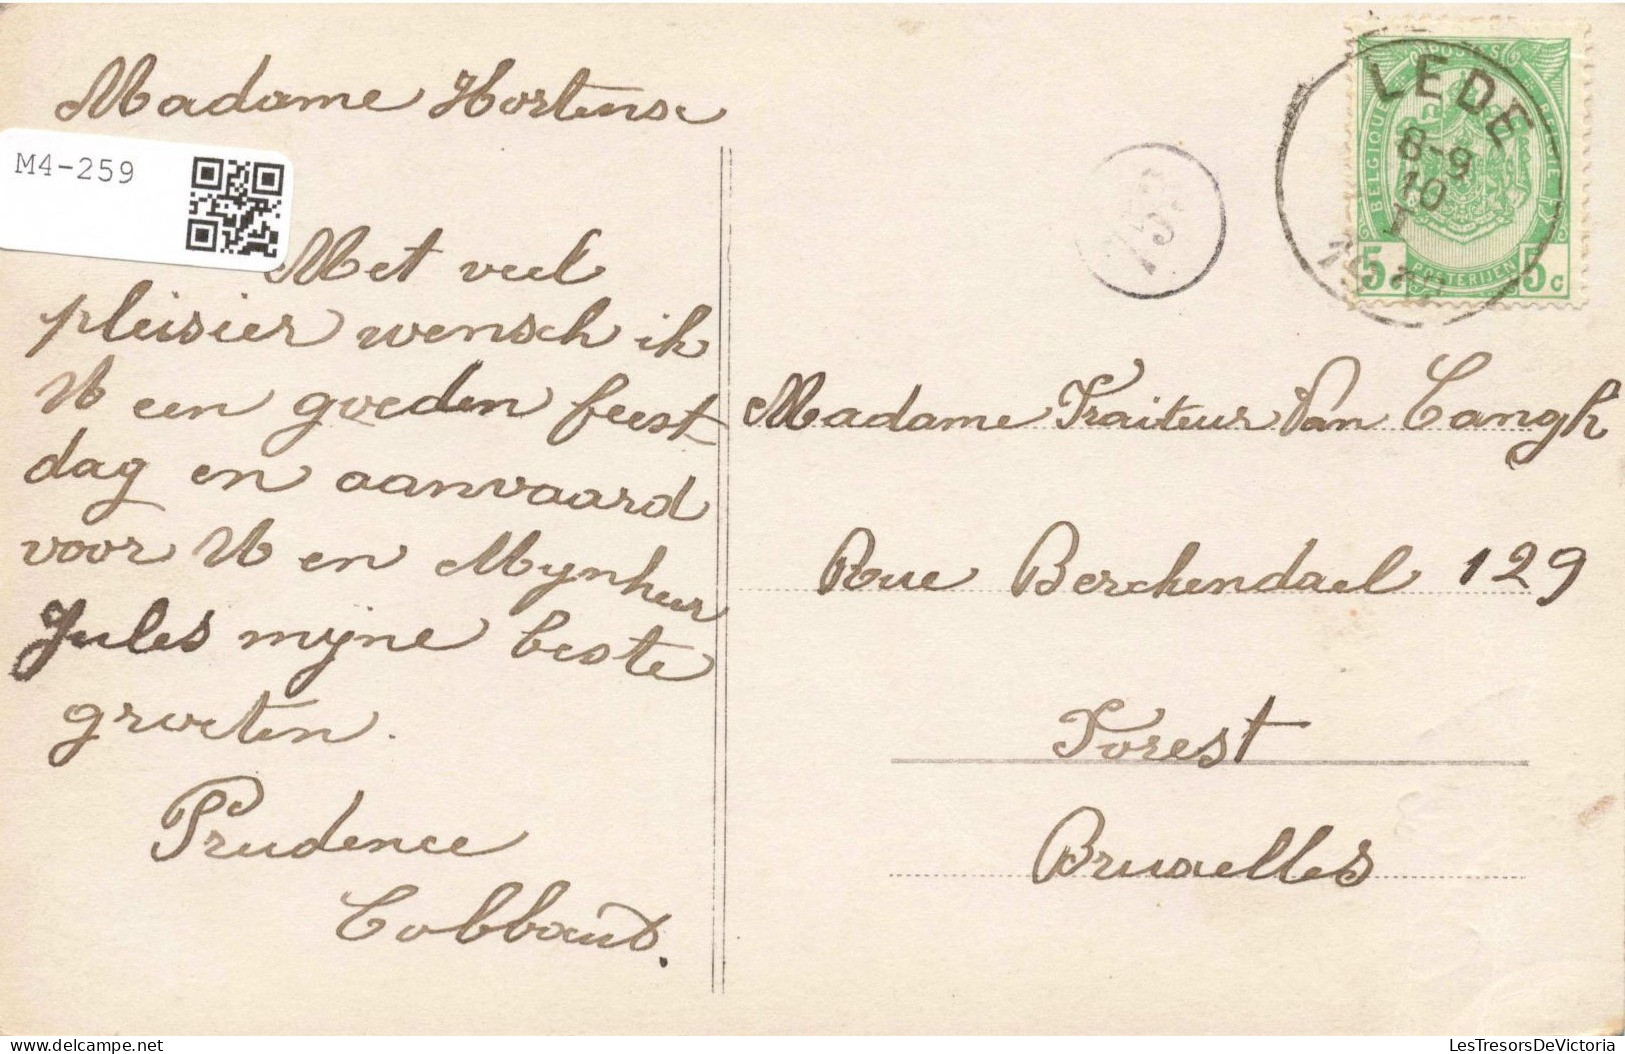 Madame Hortense
M4-259
Met veel
pleisier wensch ik
U een goeden feest
dag en aanvaard
voor U en Mynheer
Jules mijne beste
groeten.
Prudence
Cobbaut.
LEDE
8-9
10
I
POSTES
BELGIQUE
BELGIE
5
POSTERIJEN
5c
Madame Traiteur Van Cangh
Rue Berckendael 129
Forest
Bruxelles
delcampe.net
LesTresorsDeVictoria